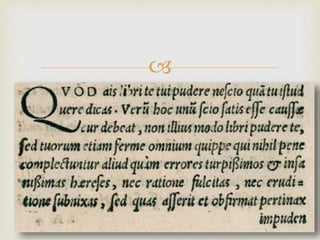 QVOD ais libri te tui pudere nescio quātu istud
uere dicas. Verū hoc unū scio satis esse caussæ
cur debeat, non illius modo libri pudere te,
sed tuorum etiam ferme omnium quippe qui nihil pene
complectuntur aliud quàm errores turpißimos & insa
nißimas hæreses, nec ratione fulcitas, nec erudi=
tione subnixas, sed quas asserit et obfirmat pertinax
impuden